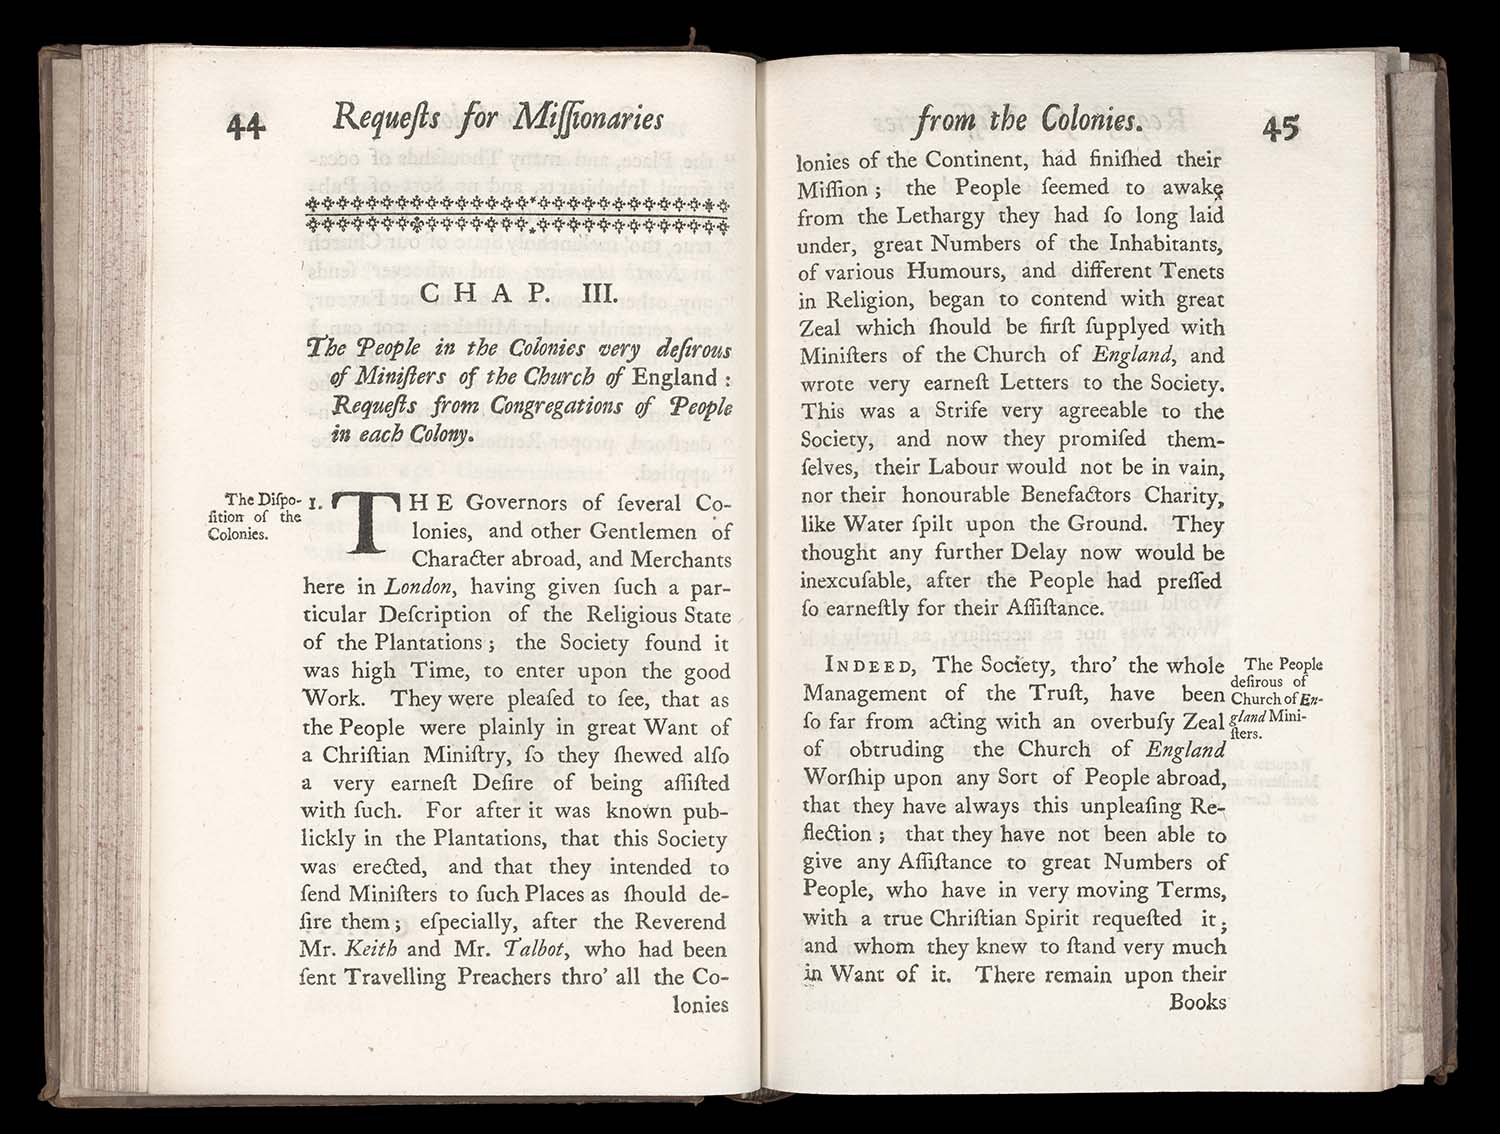 44
Requeſts for Miſſionaries
CHAP. III.
The People in the Colonies very deſirous
of Miniſters of the Church of England :
Requeſts from Congregations of People
in each Colony.
The Diſpo-
ſition of the
Colonies.
1. THE Governors of ſeveral Co-
lonies, and other Gentlemen of
Character abroad, and Merchants
here in London, having given ſuch a par-
ticular Deſcription of the Religious State
of the Plantations ; the Society found it
was high Time, to enter upon the good
Work. They were pleaſed to ſee, that as
the People were plainly in great Want of
a Chriſtian Miniſtry, ſo they ſhewed alſo
a very earneſt Deſire of being aſſiſted
with ſuch. For after it was known pub-
lickly in the Plantations, that this Society
was erected, and that they intended to
ſend Miniſters to ſuch Places as ſhould de-
ſire them ; eſpecially, after the Reverend
Mr. Keith and Mr. Talbot, who had been
ſent Travelling Preachers thro' all the Co-
lonies
from the Colonies.
45
lonies of the Continent, had finiſhed their
Miſſion ; the People ſeemed to awake
from the Lethargy they had ſo long laid
under, great Numbers of the Inhabitants,
of various Humours, and different Tenets
in Religion, began to contend with great
Zeal which ſhould be firſt ſupplyed with
Miniſters of the Church of England, and
wrote very earneſt Letters to the Society.
This was a Strife very agreeable to the
Society, and now they promiſed them-
ſelves, their Labour would not be in vain,
nor their honourable Benefactors Charity,
like Water ſpilt upon the Ground. They
thought any further Delay now would be
inexcuſable, after the People had preſſed
ſo earneſtly for their Aſſiſtance.
INDEED, The Society, thro' the whole
Management of the Truſt, have been
ſo far from acting with an overbuſy Zeal
of obtruding the Church of England
Worſhip upon any Sort of People abroad,
that they have always this unpleaſing Re-
flection ; that they have not been able to
give any Aſſiſtance to great Numbers of
People, who have in very moving Terms,
with a true Chriſtian Spirit requeſted it ;
and whom they knew to ſtand very much
in Want of it. There remain upon their
Books
The People
deſirous of
Church of En-
gland Mini-
ſters.